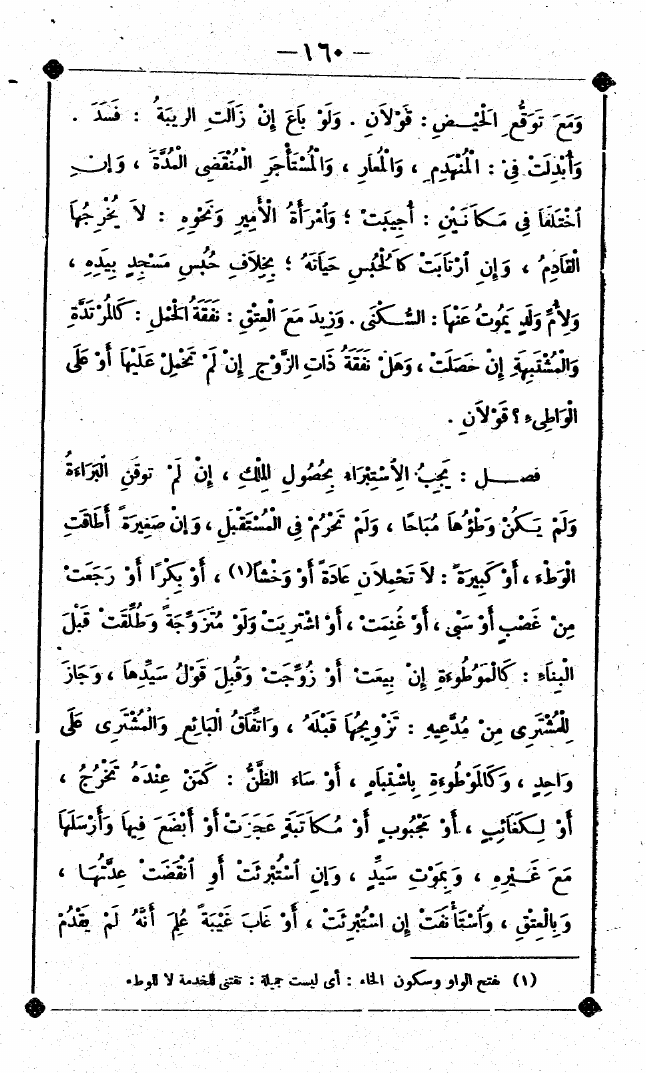 — ١٦٠ —
وَمَعَ تَوَقُّعِ الْحَيْضِ : قَوْلاَنِ . وَلَوْ بَاعَ إِنْ زَالَتِ الريبَةُ : فَسَدَ .
وَأُبْدِلَتْ فِىْ : الْمُنْهَدِمِ ، وَالْمُعَارِ ، وَالْمُسْتَأْجَرِ الْمُنْقَضِى الْمُدَّةَ ، وَإِنِ
اخْتَلَفَا فِى مَكاَنَيْنِ : أُجِيبَتْ ؛ وَامْرَأَةُ الْأَمِيرِ وَنَحْوِهِ : لاَ يُخْرِجُهَا
الْقَادِمُ ، وَإِنِ ارْتَابَتْ كاَلْحُبُسِ حَيَاتَهُ ؛ بِخِلاَفِ حُبُسِ مَسْجِدٍ بِيَدِهِ ،
وَلِأُمِّ وَلَدٍ يَمُوتُ عَنْهَا : السُّكْنَى . وَزِيدَ مَعَ الْعِتْقِ : نَفَقَةُ الْحَمْلِ : كَالْمُرْتَدَّةِ
وَالْمُشْتَبِهَةِ إِنْ حَمَلَتْ ، وَهَلْ نَفَقَةُ ذَاتِ الزَّوْجِ إِنْ لَمْ تَحْمِلْ عَلَيْهَا أَوْ عَلَى
الْوَاطِىءِ ؟ قَوْلاَنِ .
فصـل : يَجِبُ الاِسْتِبْرَاء بِحُصُولِ الْمِلْكِ ، إِنْ لَمْ تُوقَنِ الْبَرَاءَةُ
وَلَمْ يَكُنْ وَطْؤُهَا مُبَاحًا ، وَلَمْ تَحْرُمْ فِى الْمُسْتَقْبَلِ ، وَإِنْ صَغِيرَةً أَطَاقَتِ
الْوَطْءَ ، أَوْ كَبِيرَةً : لاَ تَحْمِلاَنِ عَادَةً أَوْ وَخْشًا(١) ، أَوْ بِكْرًا أَوْ رَجَعَتْ
مِنْ غَصْبٍ أَوْ سَبْىٍ ، أَوْ غُنِمَتْ ، أَوْ اشْتُرِيَتْ وَلَوْ مُتَزَوِّجَةً وَطُلِّقَتْ قَبْلَ
الْبِنَاءِ : كَالْمَوْطُوءَةِ إِنْ بِيعَتْ أَوْ زُوِّجَتْ وَقُبِلَ قَوْلُ سَيِّدِهاَ ، وَجَازَ
لِلْمُشْتَرِى مِنْ مُدَّعِيهِ : تَزْوِيجُهَا قَبْلَهُ ، وَاتِّفَاقُ الْبَائِعِ وَالْمُشْتَرِى عَلَى
وَاحِدٍ ، وَكَالْمَوْطُوءَةِ بِاشْتِبَاهٍ ، أَوْ سَاءَ الظَّنُّ : كَمَنْ عِنْدَهُ تَخْرُجُ ،
أَوْ لِكَغَائِبٍ ، أَوْ مَجْبُوبٍ أَوْ مُكاَتَبَةٍ عَجَزَتْ أَوْ أَبْضَعَ فِيهَا وَأَرْسَلَهَا
مَعَ غَيْرِهِ ، وَبِمَوْتِ سَيِّدٍ ، وَإِنِ اسْتُبْرِئَتْ أَوِ انْقَضَتْ عِدَّتُهَا ،
وَبِالْعِتْقِ ، وَاسْتَأْنَفَتْ إِن اسْتُبْرِئَتْ ، أَوْ غَابَ غَيْبَةً عُلِمَ أَنَّهُ لَمْ يَقْدُمْ
(١) بفتح الواو وسكون الخاء : أى ليست جميلة : تقتنى للخدمة لا للوطء